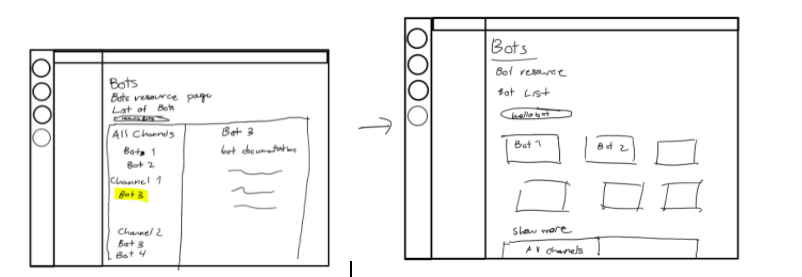 Bots
Bots resource page
List of Bots
All Channels
Bot 1
Bot 2
Channel 1
Bot 3
Channel 2
Bot 3
Bot 4
Bot 3
bot documentation
Bots
Bot resource
Bot List
hello bot
Bot 1
Bot 2
Show more
All channels